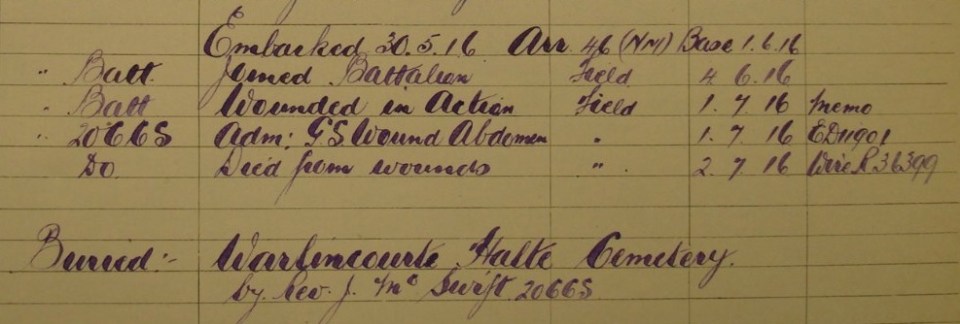 Embarked 30.5.16 Arr 46 (NM) Base 1.6.16
" Batt. Joined Battalion Field 4 6.16
" Batt Wounded in Action Field 1.7.16 Memo
" 20CCS Adm: GS Wound Abdomen " 1.7.16 ED11901
Do. Died from wounds " 2.7.16 Wire R36399
Buried:- Warlincourte Halte Cemetery.
by Rev. J. Mc Swift 20CCS